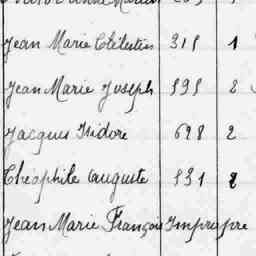 Jean Marie Célestin 315 1
Jean Marie Joseph 595 2
Jacques Isidore 698 2
Théophile Auguste 531 2
Jean Marie François Impropre